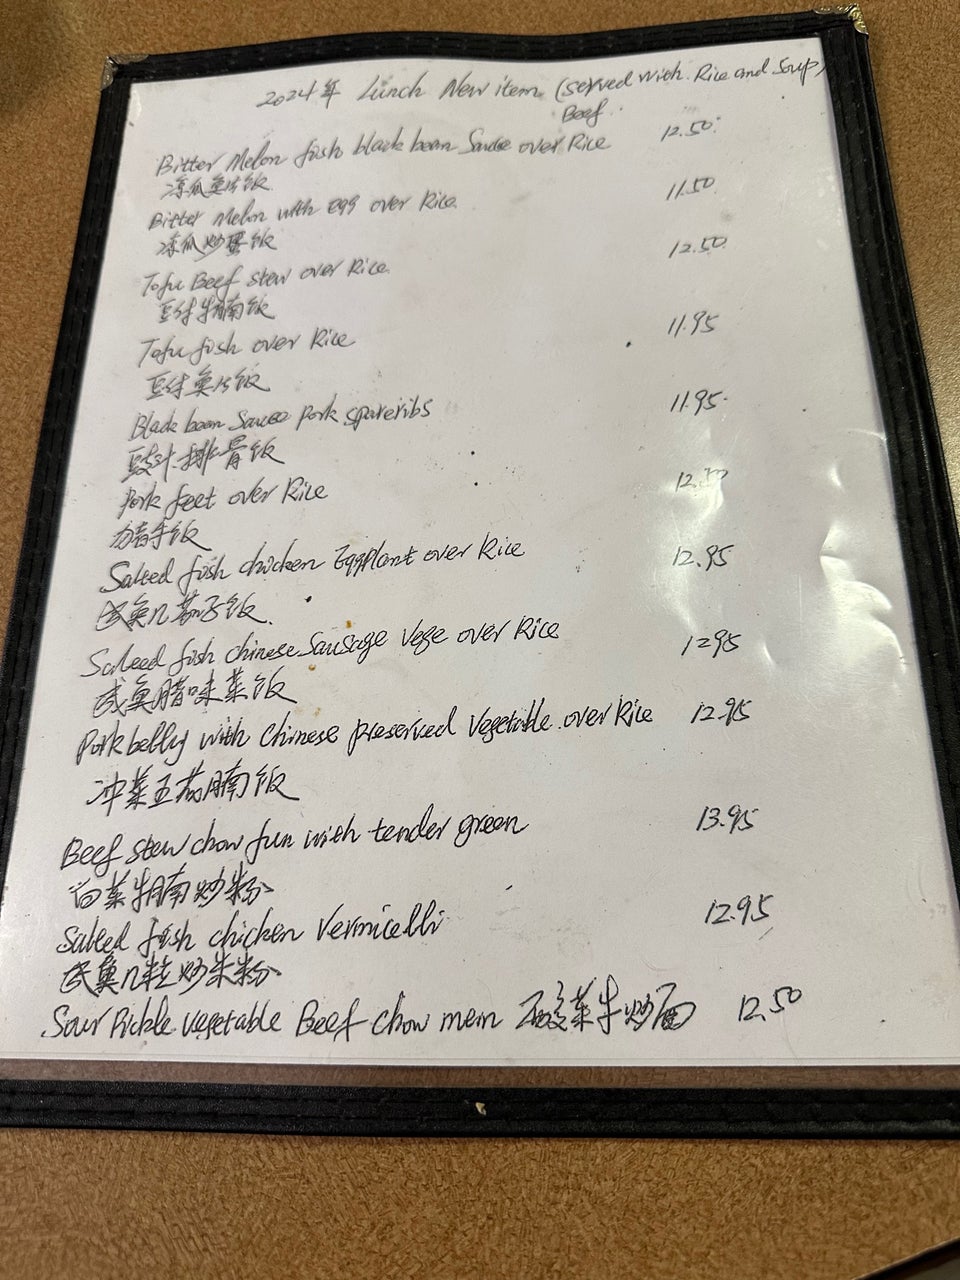 2024年 Lunch New item (served with Rice and Soup)
Beef
Bitter Melon fish black bean Sauce over Rice 12.50
凉瓜鱼片饭
Bitter Melon with egg over Rice 11.50
凉瓜炒蛋饭
Tofu Beef stew over Rice 12.50
牛腩饭
Tofu fish over Rice 11.95
鱼片饭
Black bean Sauce Pork spareribs 11.95
豉汁排骨饭
Pork feet over Rice
猪手饭
Salted fish chicken Eggplant over Rice 12.95
茄子饭
Salted fish chinese Sausage Vege over Rice 1295
腊味菜饭
Pork belly with Chinese preserved Vegetable over Rice 12.95
冲菜五花腩饭
Beef stew chow fun with tender green 13.95
白菜牛腩炒粉
Salted fish chicken Vermicelli 12.95
粒炒米粉
Sour Pickle vegetable Beef chow mein 酸菜牛炒面 12.50